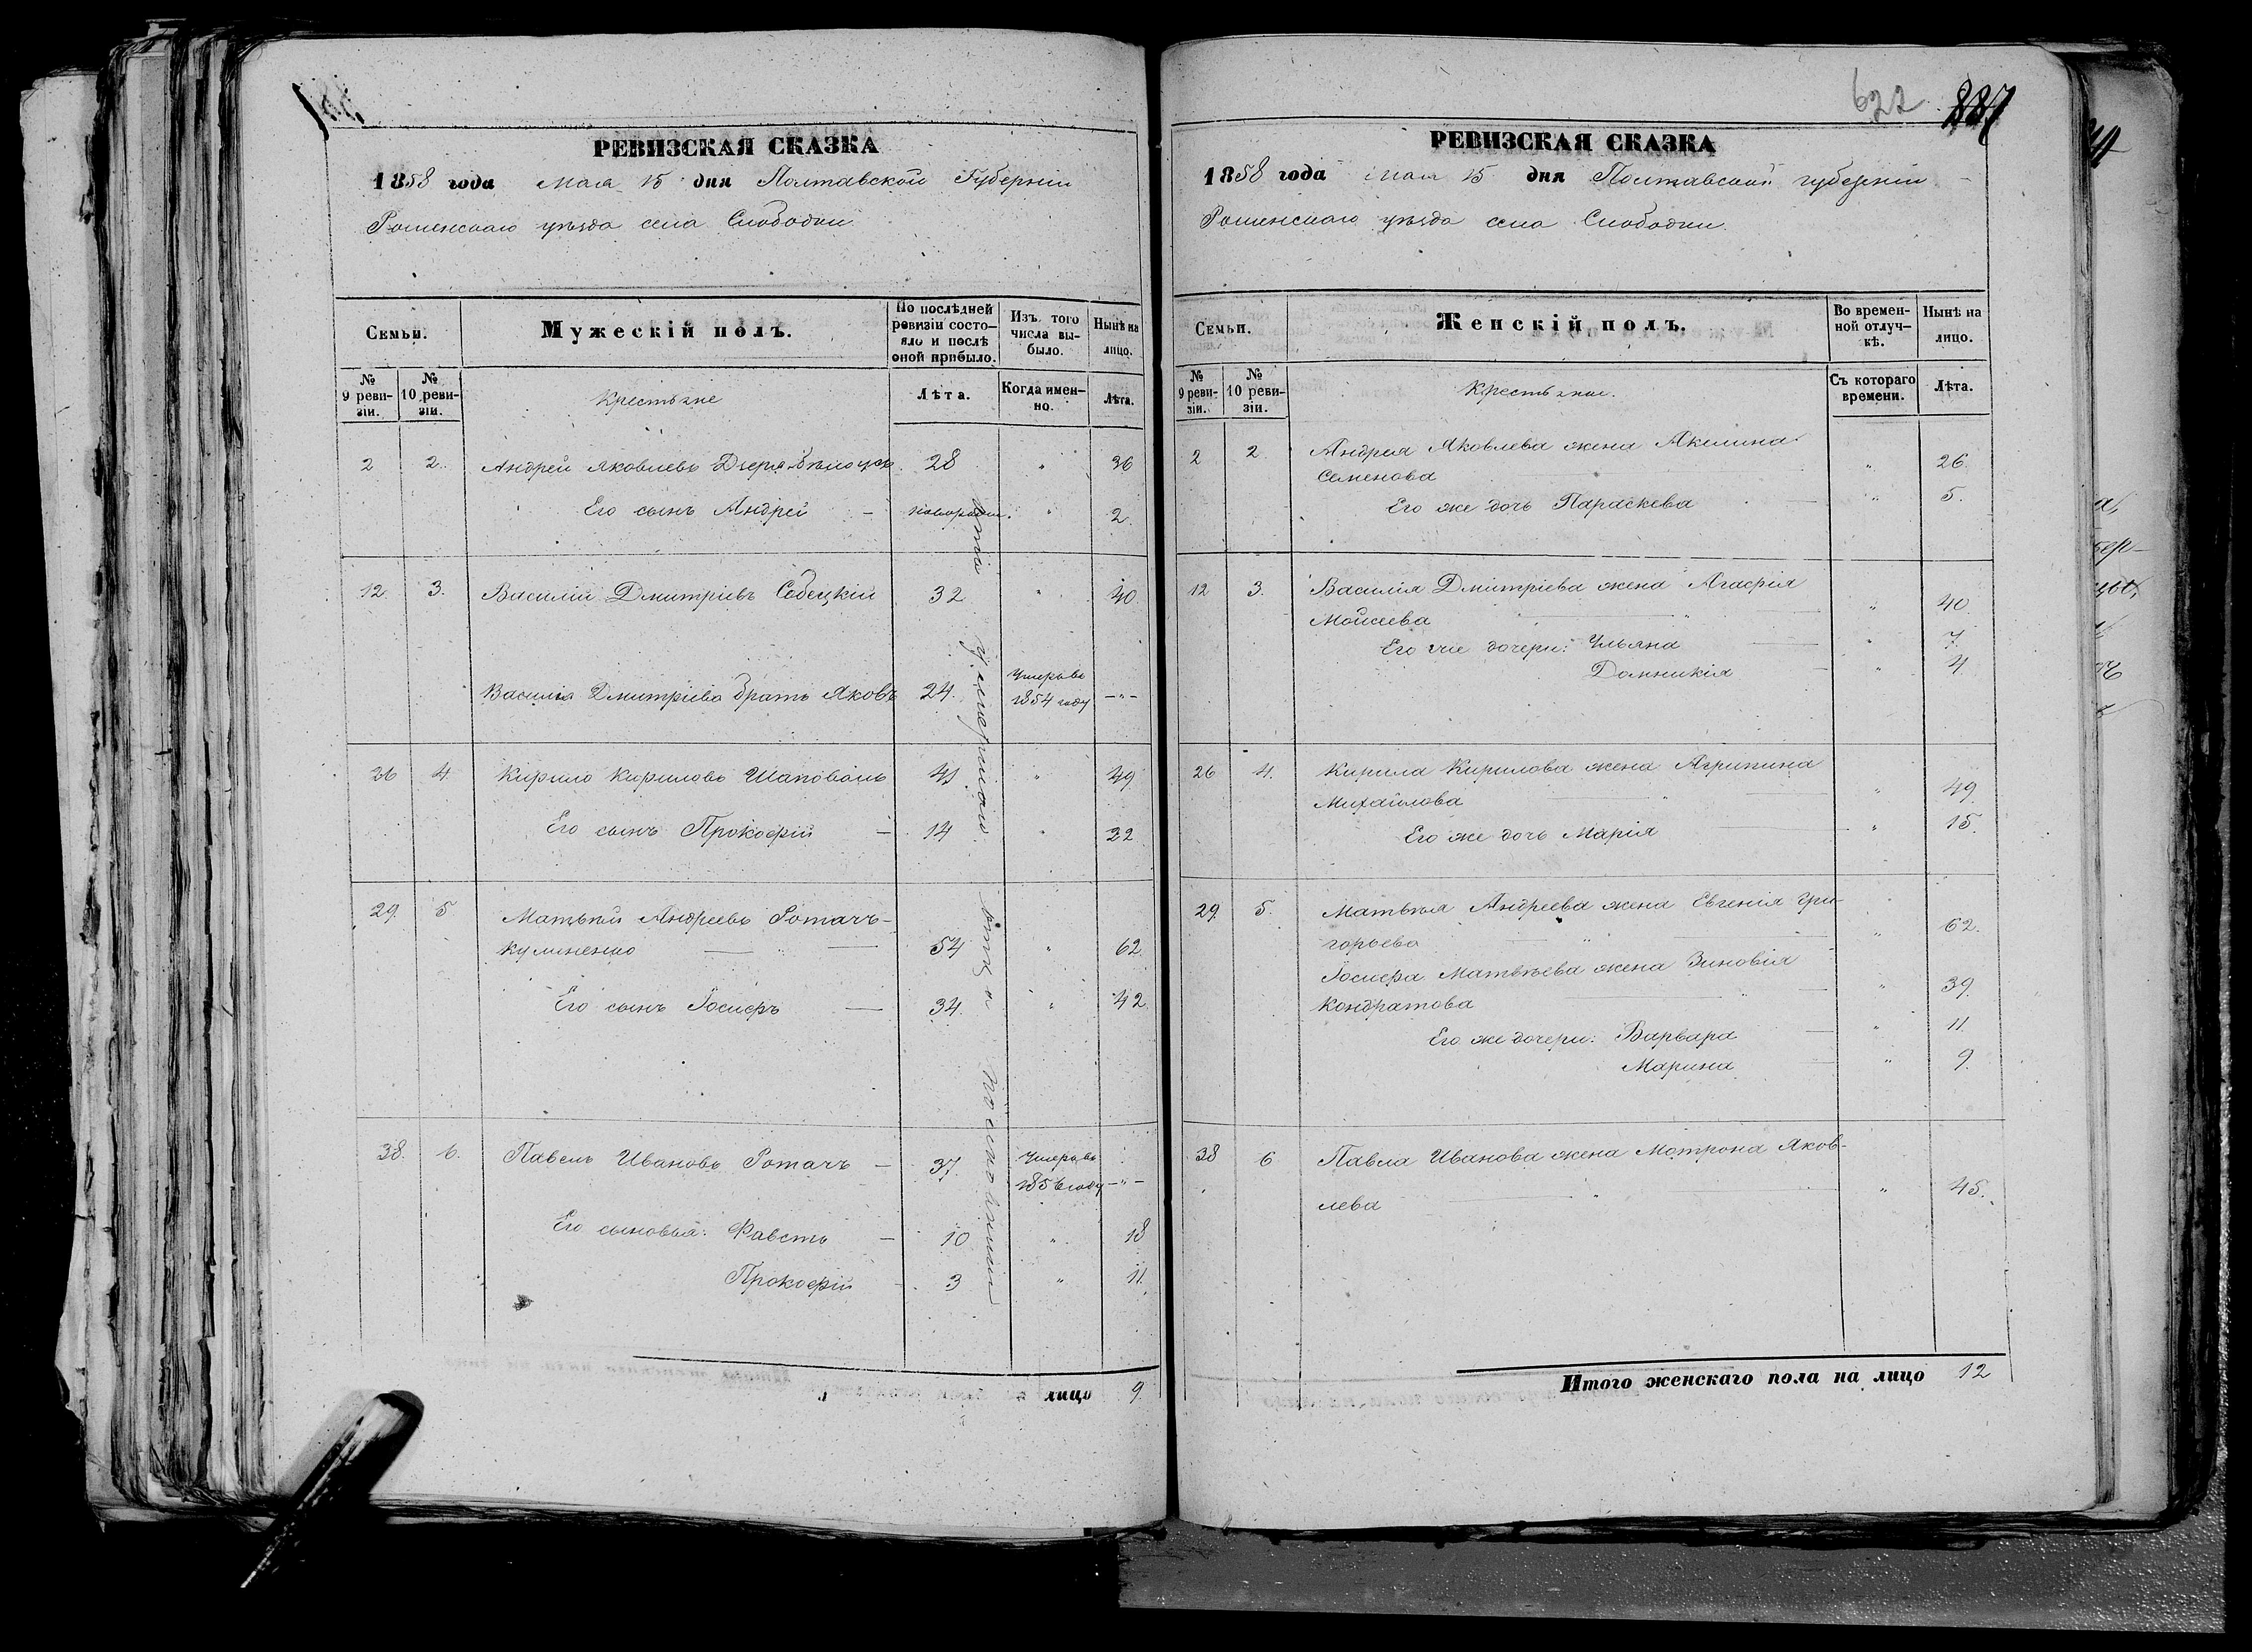 РЕВИЗСКАЯ СКАЗКА
1858 года Мая 15 дня Полтавской Губерніи
Роменскаго уѣзда села Слободки
Семьи.
Мужескій полъ.
По послѣдней ревизіи состояло и послѣ оной прибыло.
Изъ того числа выбыло.
Нынѣ на лицо.
№ 9 ревизіи.
№ 10 ревизіи.
Крестьяне
Лѣта.
Когда именно.
Лѣта.
2 2. Андрей Яковлевъ 28 " 36
Его сынъ Андрей — новорожд. " 2.
12. 3. Василій Дмитріевъ Себецкій 32 " 40.
Василія Дмитріева братъ Яковъ 24. Умеръ въ
1854 году —"—
26 4 Кирило Кириловъ Шаповалъ 41 " 49
Его сынъ Прокофій — 14 " 22
29. 5 Матвѣй Андреевъ Ротачъ-
Куличенко — " — 54 " 62
Его сынъ Іосифъ — 34. " 42
38. 6. Павелъ Ивановъ Ротачъ — 37. Умеръ въ
1856 году —"—
Его сыновья: Фавстъ — 10 " 18
Прокофій 3 " 11.
лицо 9.
622 887
РЕВИЗСКАЯ СКАЗКА
1858 года мая 15 дня Полтавской губерніи
Роменскаго уѣзда села Слободки.
Семьи.
Женскій полъ.
Во временной отлучкѣ.
Нынѣ на лицо.
№ 9 ревизіи.
№ 10 ревизіи.
Крестьяне.
Съ котораго времени.
Лѣта.
2 2 Андрея Яковлева жена Акилина
Семенова " 26.
Его же дочь Параскева — " 5.
12 3. Василія Дмитріева жена Агафія
Моисеева " 40
Его же дочери: Ульяна — " 7.
Домникія — " 4.
26 4. Кирила Кирилова жена Агрипина
Михайлова — " — " 49
Его же дочь Марія — " 15.
29. 5. Матвѣя Андреева жена Евгенія Гри-
горьева — " — " 62.
Іосифа Матвѣева жена Зиновія
Кондратова — " — " 39.
Его же дочери: Варвара — " 11.
Марина — " 9.
38 6 Павла Иванова жена Мотрона Яков-
лева — " — " 45.
Итого женскаго пола на лицо 12